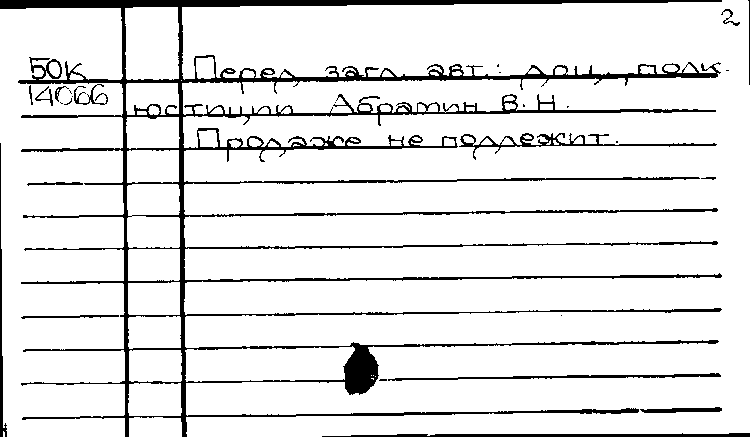 2
50К Перед загл. авт.: доц., полк.
14066 юстиции Абрамин В. Н.
Продаже не подлежит.